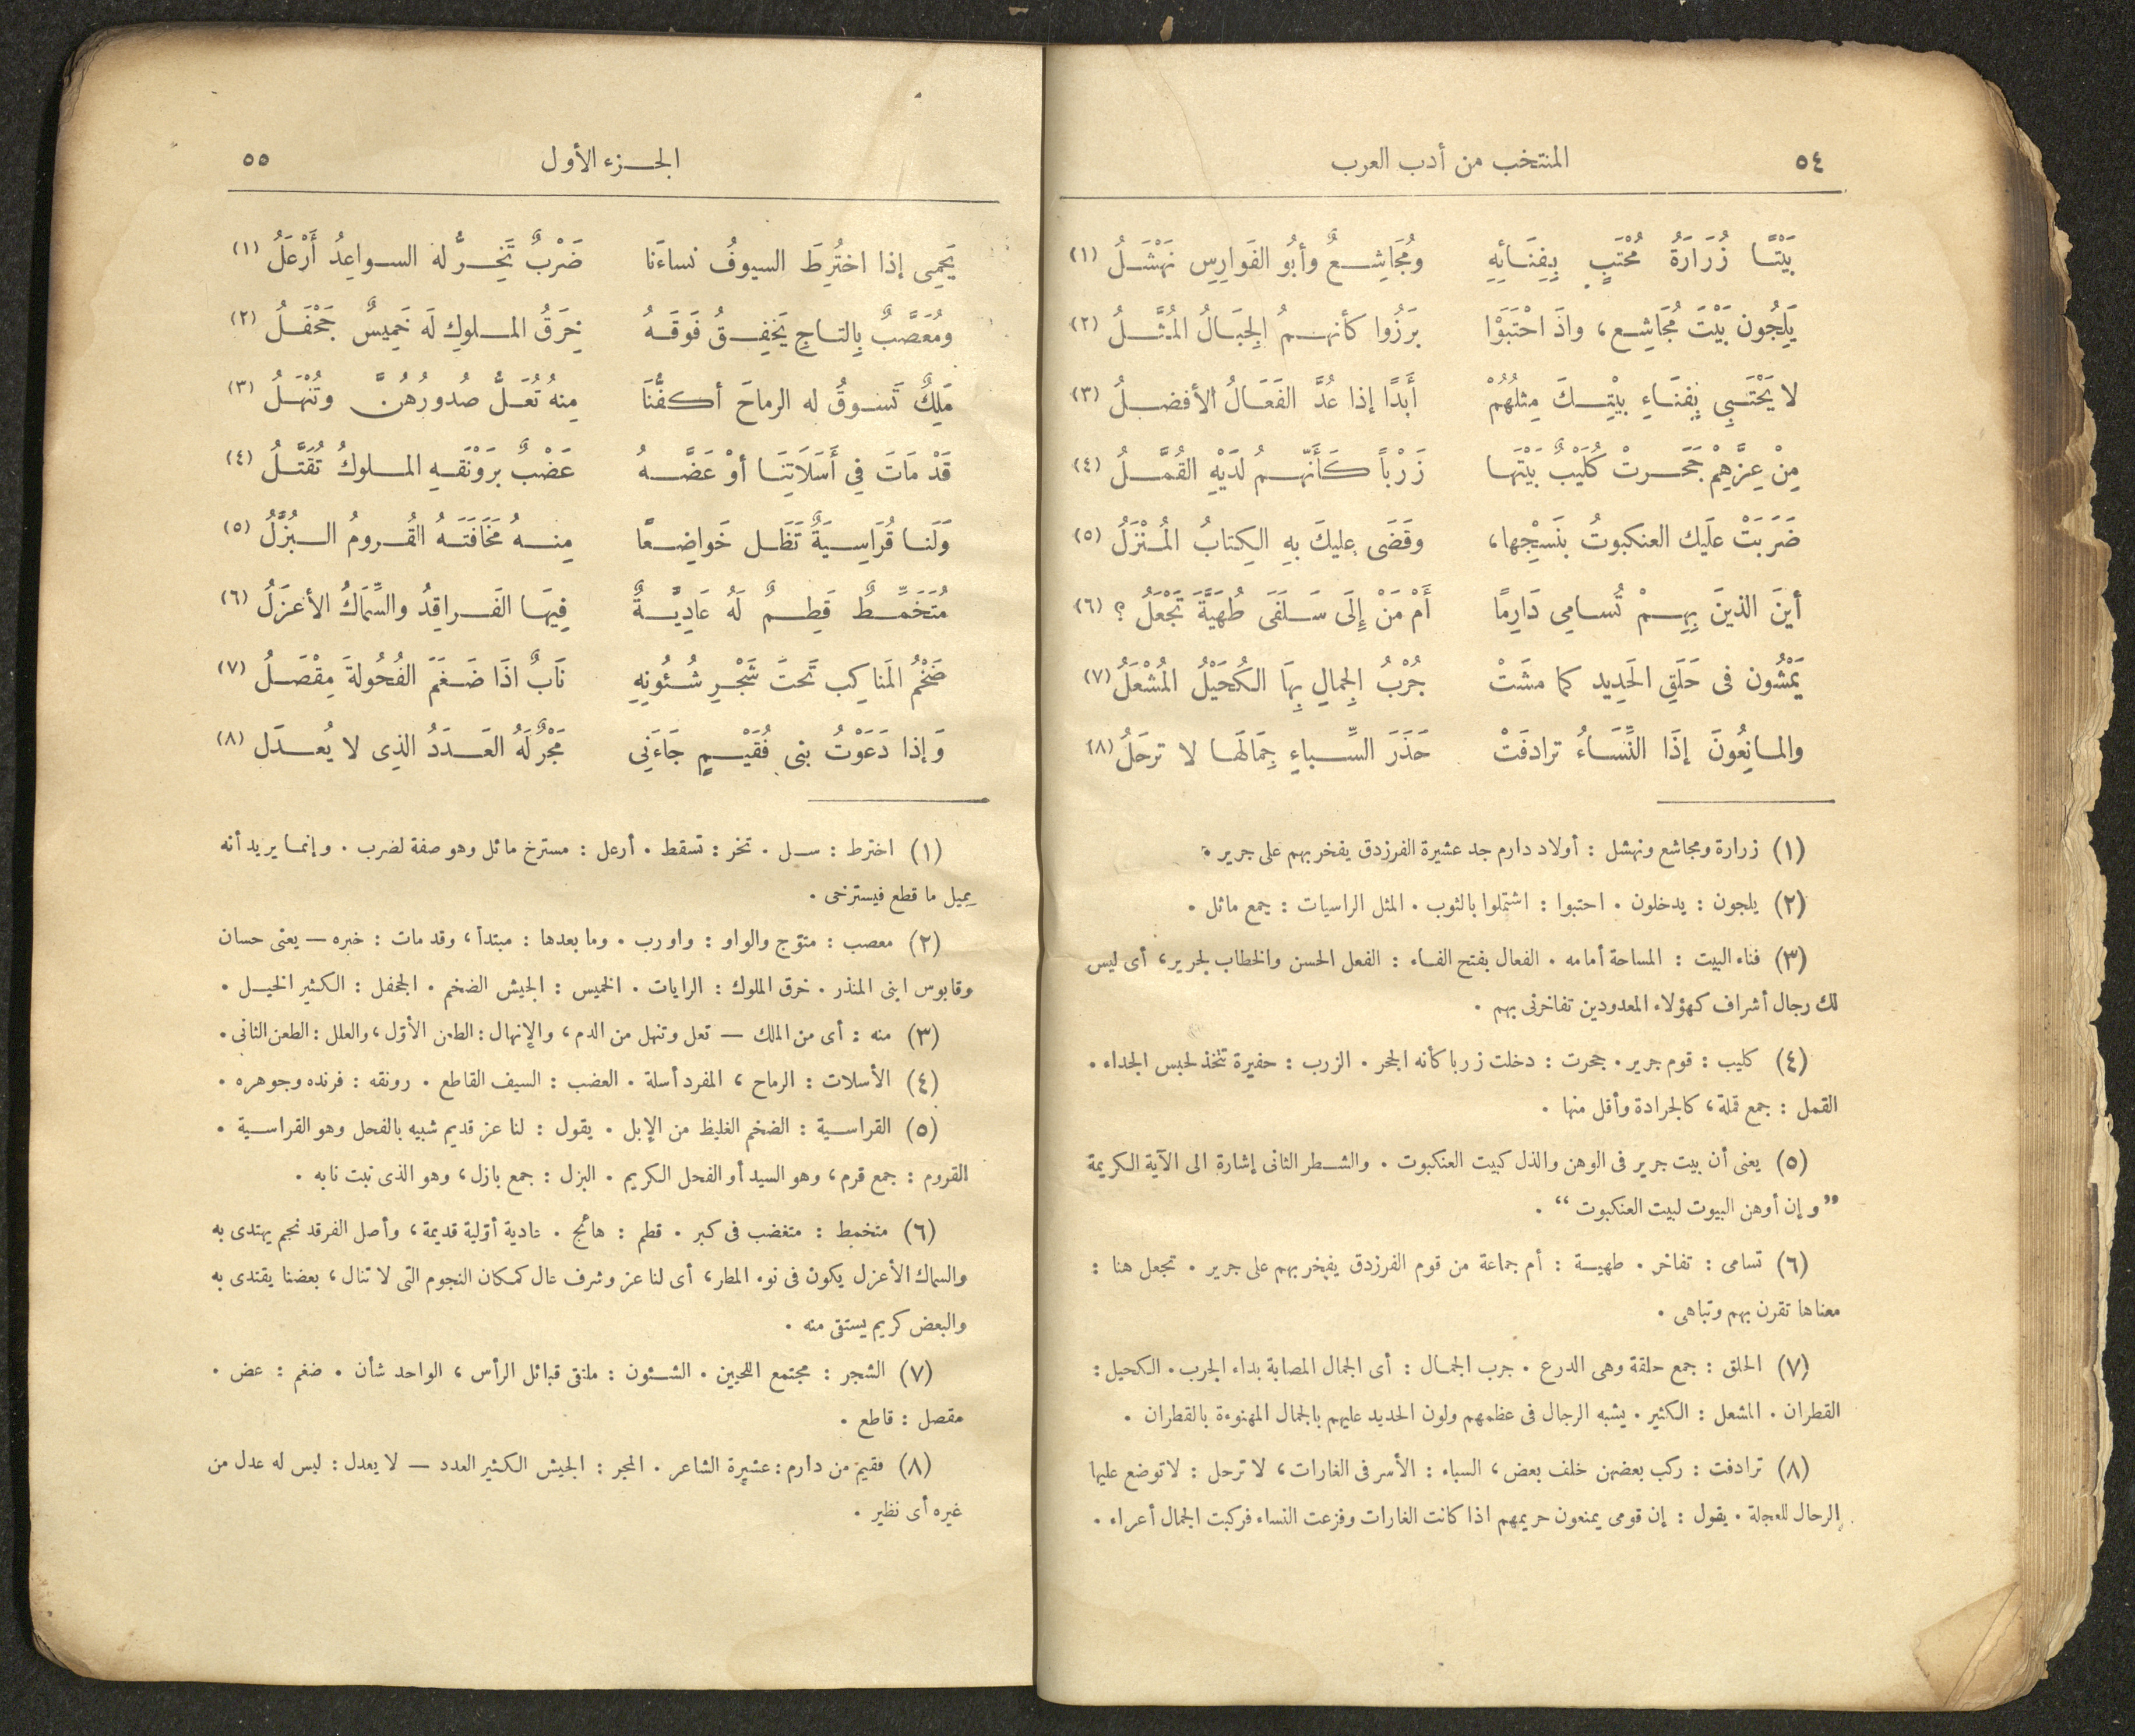 ٥٤ المنتخب من أدب العرب
بَيْتًا زُرَارَةُ مُحْتَبٍ بِفِنَائِهِ ومُجَاشِعٌ وأبُو الفَوارِسِ نَهْشَلُ (١)
يَلِجُون بَيْتَ مُجَاشِعٍ، واذَ احْتَبَوْا بَرَزُوا كأنهمُ الجِبَالُ المُثَّلُ (٢)
لا يَحْتَبِي بِفِنَاءِ بيْتِكَ مِثلُهُمْ أَبَدًا إذا عُدَّ الفَعَالُ الأفضلُ (٣)
مِنْ عِزِّهِمْ جَحَرتْ كُلَيْبٌ بَيْتَهَا زَرْباً كَأَنَّهمُ لَدَيْهِ القُمَّلُ (٤)
ضَرَبَتْ علَيك العنكبوتُ بنَسْجِها، وقَضَى عليكَ بهِ الكِتابُ المُنْزَلُ (٥)
أينَ الذينَ بِهِمْ تُسامِى دَارِمًا أَمْ مَنْ إِلَى سَلَفَى طُهَيَّةَ تَجْعَلُ ؟ (٦)
يَمْشُون فى حَلَقِ الحَدِيد كما مشَتْ جُرْبُ الجِمالِ بِهَا الكُحَيْلُ المُشْعَلُ (٧)
والمانِعُونَ إذَا النِّسَاءُ ترادفَتْ حَذَرَ السِّباءِ جِمَالَهَا لا ترحَلُ (٨)
(١) زرارة ومجاشع ونهشل : أولاد دارم جد عشيرة الفرزدق يفخر بهم على جرير .
(٢) يلجون : يدخلون . احتبوا : اشتملوا بالثوب . المثل الراسيات : جمع ماثل .
(٣) فناء البيت : المساحة أمامه . الفعال بفتح الفاء : الفعل الحسن والخطاب لجرير، أى ليس
لك رجال أشراف كهؤلاء المعدودين تفاخرنى بهم .
(٤) كليب : قوم جرير . جحرت : دخلت زربا كأنه الجحر . الزرب : حفيرة تتخذ لحبس الجداء .
القمل : جمع قملة، كالجرادة وأقل منها .
(٥) يعنى أن بيت جرير فى الوهن والذل كبيت العنكبوت . والشطر الثانى إشارة الى الآية الكريمة
”وإن أوهن البيوت لبيت العنكبوت“ .
(٦) تسامى : تفاخر . طهية : أم جماعة من قوم الفرزدق يفخر بهم على جرير . تجعل هنا :
معناها تقرن بهم وتباهى .
(٧) الحلق : جمع حلقة وهى الدرع . جرب الجمال : أى الجمال المصابة بداء الجرب . الكحيل :
القطران . المشعل : الكثير . يشبه الرجال فى عظمهم ولون الحديد عليهم بالجمال المهنوءة بالقطران .
(٨) ترادفت : ركب بعضهن خلف بعض، السباء : الأسر فى الغارات، لا ترحل : لا توضع عليها
الرحال للعجلة . يقول : إن قومى يمنعون حريمهم اذا كانت الغارات وفزعت النساء فركبت الجمال أعراء .
الجزء الأول ٥٥
يَحمِى إذا اختُرِطَ السيوفُ نساءَنا ضَرْبٌ تَخِرُّ له السواعِدُ أَرْعَلُ (١)
ومُعَصَّبٌ بِالتاجِ يَخفِقُ فَوقَهُ خِرَقُ الملوكِ لَه خَمِيسٌ جَحْفَلُ (٢)
مَلِكٌ تَسوقُ له الرماحَ أكفُّنَا مِنهُ تُعَلُّ صُدورُهُنَّ وتُنْهَلُ (٣)
قَدْ مَاتَ فِي أَسَلَاتِنَا أوْ عَضَّهُ عَضْبٌ بَرَوْنَقهِ الملوكُ تُقَتَّلُ (٤)
وَلَنا قُرَاسِيَةٌ تَظَل خَواضِعًا مِنهُ مَخَافَتَهُ القُرومُ البُزَّلُ (٥)
مُتَخَمِّطٌ قَطِمٌ لَهُ عَادِيَّةٌ فِيهَا الفَراقِدُ والسِّمَاكُ الأعزَلُ (٦)
ضَخْمُ المَناكِب تَحتَ شَجْرِ شُئُونِهِ نَابٌ اذَا ضَغَمَ الفُحُولةَ مِقْصَلُ (٧)
وَإذا دَعَوْتُ بنى فُقَيْمٍ جَاءَنِى مَجْرٌ لَهُ العَدَدُ الذِى لا يُعدَل (٨)
(١) اخترط : سل . تخر : تسقط . أرعل : مسترخ مائل وهو صفة لضرب . وإنما يريد أنه
يميل ما قطع فيسترخى .
(٢) معصب : متوّج والواو : واو رب . وما بعدها : مبتدأ، وقد مات : خبره — يعنى حسان
وقابوس ابنى المنذر . خرق الملوك : الرايات . الخميس : الجيش الضخم . الجحفل : الكثير الخيل .
(٣) منه : أى من الملك — تعل وتنهل من الدم، والإنهال : الطعن الأوّل، والعلل : الطعن الثانى .
(٤) الأسلات : الرماح، المفرد أسلة . العضب : السيف القاطع . رونقه : فرنده وجوهره .
(٥) القراسية : الضخم الغليظ من الإبل . يقول : لنا عز قديم شبيه بالفحل وهو القراسية .
القروم : جمع قرم، وهو السيد أو الفحل الكريم . البزل : جمع بازل، وهو الذى نبت نابه .
(٦) متخمط : متغضب فى كبر . قطم : هائج . عادية أوّلية قديمة، وأصل الفرقد نجم يهتدى به
والسماك الأعزل يكون فى نوء المطر، أى لنا عز وشرف عال كمكان النجوم التى لا تنال، بعضنا يقتدى به
والبعض كريم يستقى منه .
(٧) الشجر : مجتمع اللحيين . الشئون : ملتقى قبائل الرأس، الواحد شأن . ضغم : عض .
مقصل : قاطع .
(٨) فقيم من دارم : عشيرة الشاعر . المجر : الجيش الكثير العدد — لا يعدل : ليس له عدل من
غيره أى نظير .